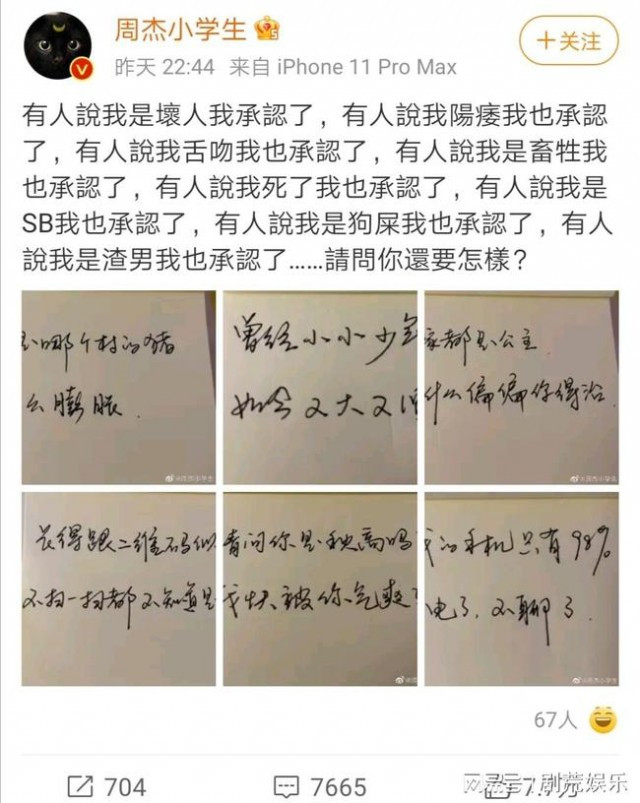 周杰小学生
+关注
昨天 22:44 来自 iPhone 11 Pro Max
有人說我是壞人我承認了，有人說我陽痿我也承認
了，有人說我舌吻我也承認了，有人說我是畜牲我
也承認了，有人說我死了我也承認了，有人說我是
SB我也承認了，有人說我是狗屎我也承認了，有人
說我是渣男我也承認了……請問你還要怎樣？
是哪个村的猪
么膨胀
@周杰小学生
曾经小小少年
如今又大又
家都是公主
什么偏偏你得治
@周杰小学生
长得跟二维码似
不扫一扫都不知道是
请问你是秋高吗
我快被你气爽
我的手机只有98%
电了，不聊了
@周杰小学生
67人
704
7665
剧荒娱乐